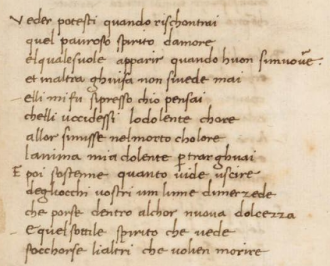 Veder potesti quando riscontrai
quel pauroso spirito damore
elqualesuole apparir quando huon simuoue
et maltra ghuisa non siuede mai
elli mi fu sipresso chio pensai
chelli uccidessi lodolente chore
allor simisse nelmorto cholore
lanima mia dolente ptrarghuai
E poi sostenne quanto uide uscire
degliocchi uostri un lume dimerzede
che porse dentro alchor nuoua dolcezza
E quel sottile spirito che uede
socchorse lialtri che volien morire